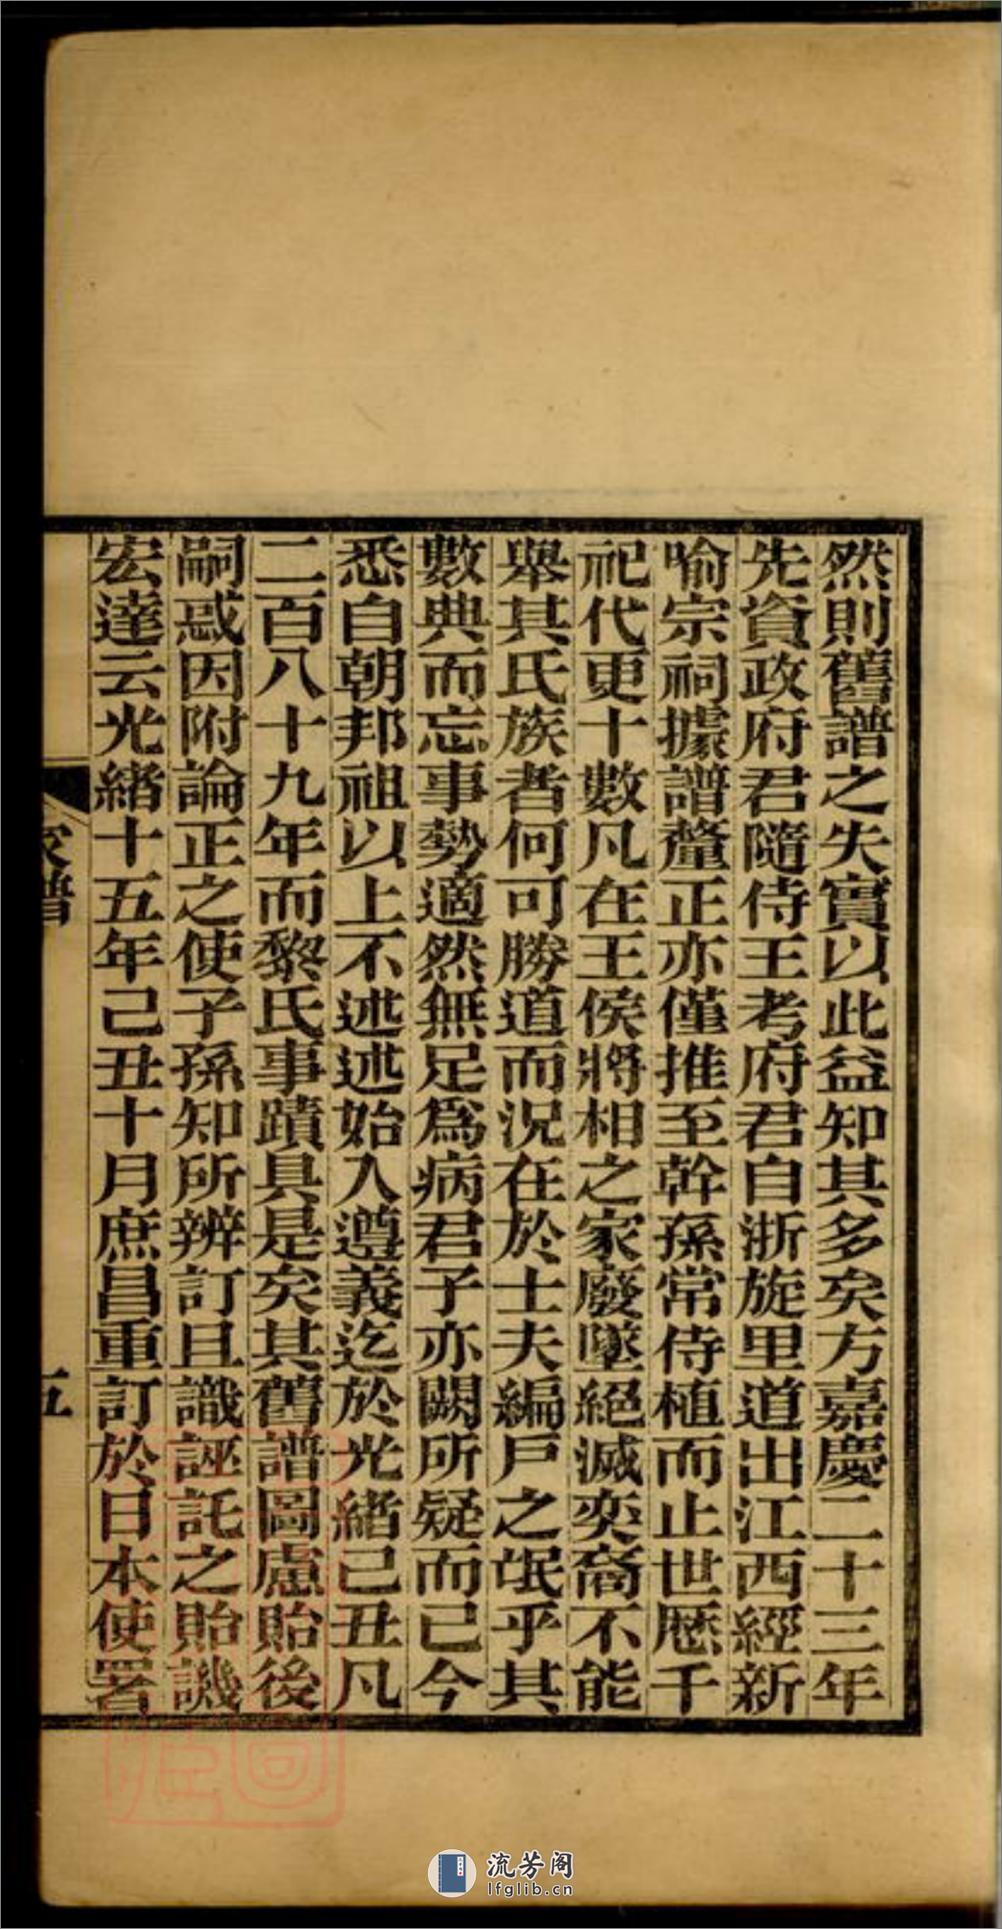 然則舊譜之失實以此益知其多矣方嘉慶二十三年
先資政府君隨侍王考府君自浙旋里道出江西經新
喻宗祠據譜釐正亦僅推至幹孫常侍植而止世歷千
祀代更十數凡在王侯將相之家廢墜絕滅奕裔不能
舉其氏族者何可勝道而況在於士夫編戶之氓乎其
數典而忘事勢適然無足爲病君子亦闕所疑而已今
悉自朝邦祖以上不述述始入遵義迄於光緒己丑凡
二百八十九年而黎氏事蹟具是矣其舊譜圖慮貽後
嗣惑因附論正之使子孫知所辨訂且識誣託之貽譏
宏達云光緒十五年己丑十月庶昌重訂於日本使署
家譜
五
流芳阁
lfglib.cn